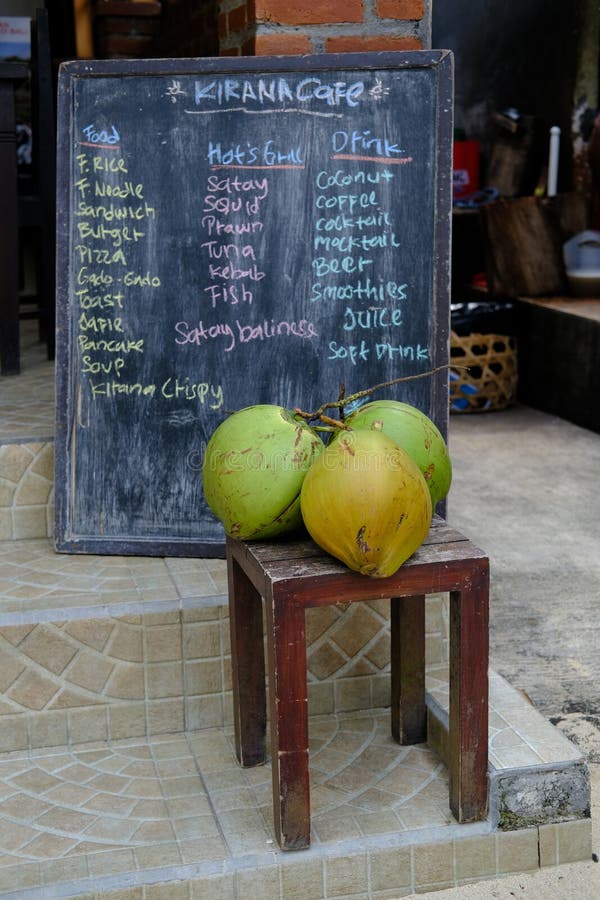 KIRANA Cafe
Food
F. Rice
F. Noodle
Sandwich
Burger
Pizza
Gado-Gado
Toast
Jaffle
Pancake
Soup
Kirana Crispy
Hot's Grill
Satay
Squid
Prawn
Tuna
Kebab
Fish
Satay balinese
Drink
Coconut
Coffee
Cocktail
Mocktail
Beer
Smoothies
Juice
Soft Drink
dreamstime